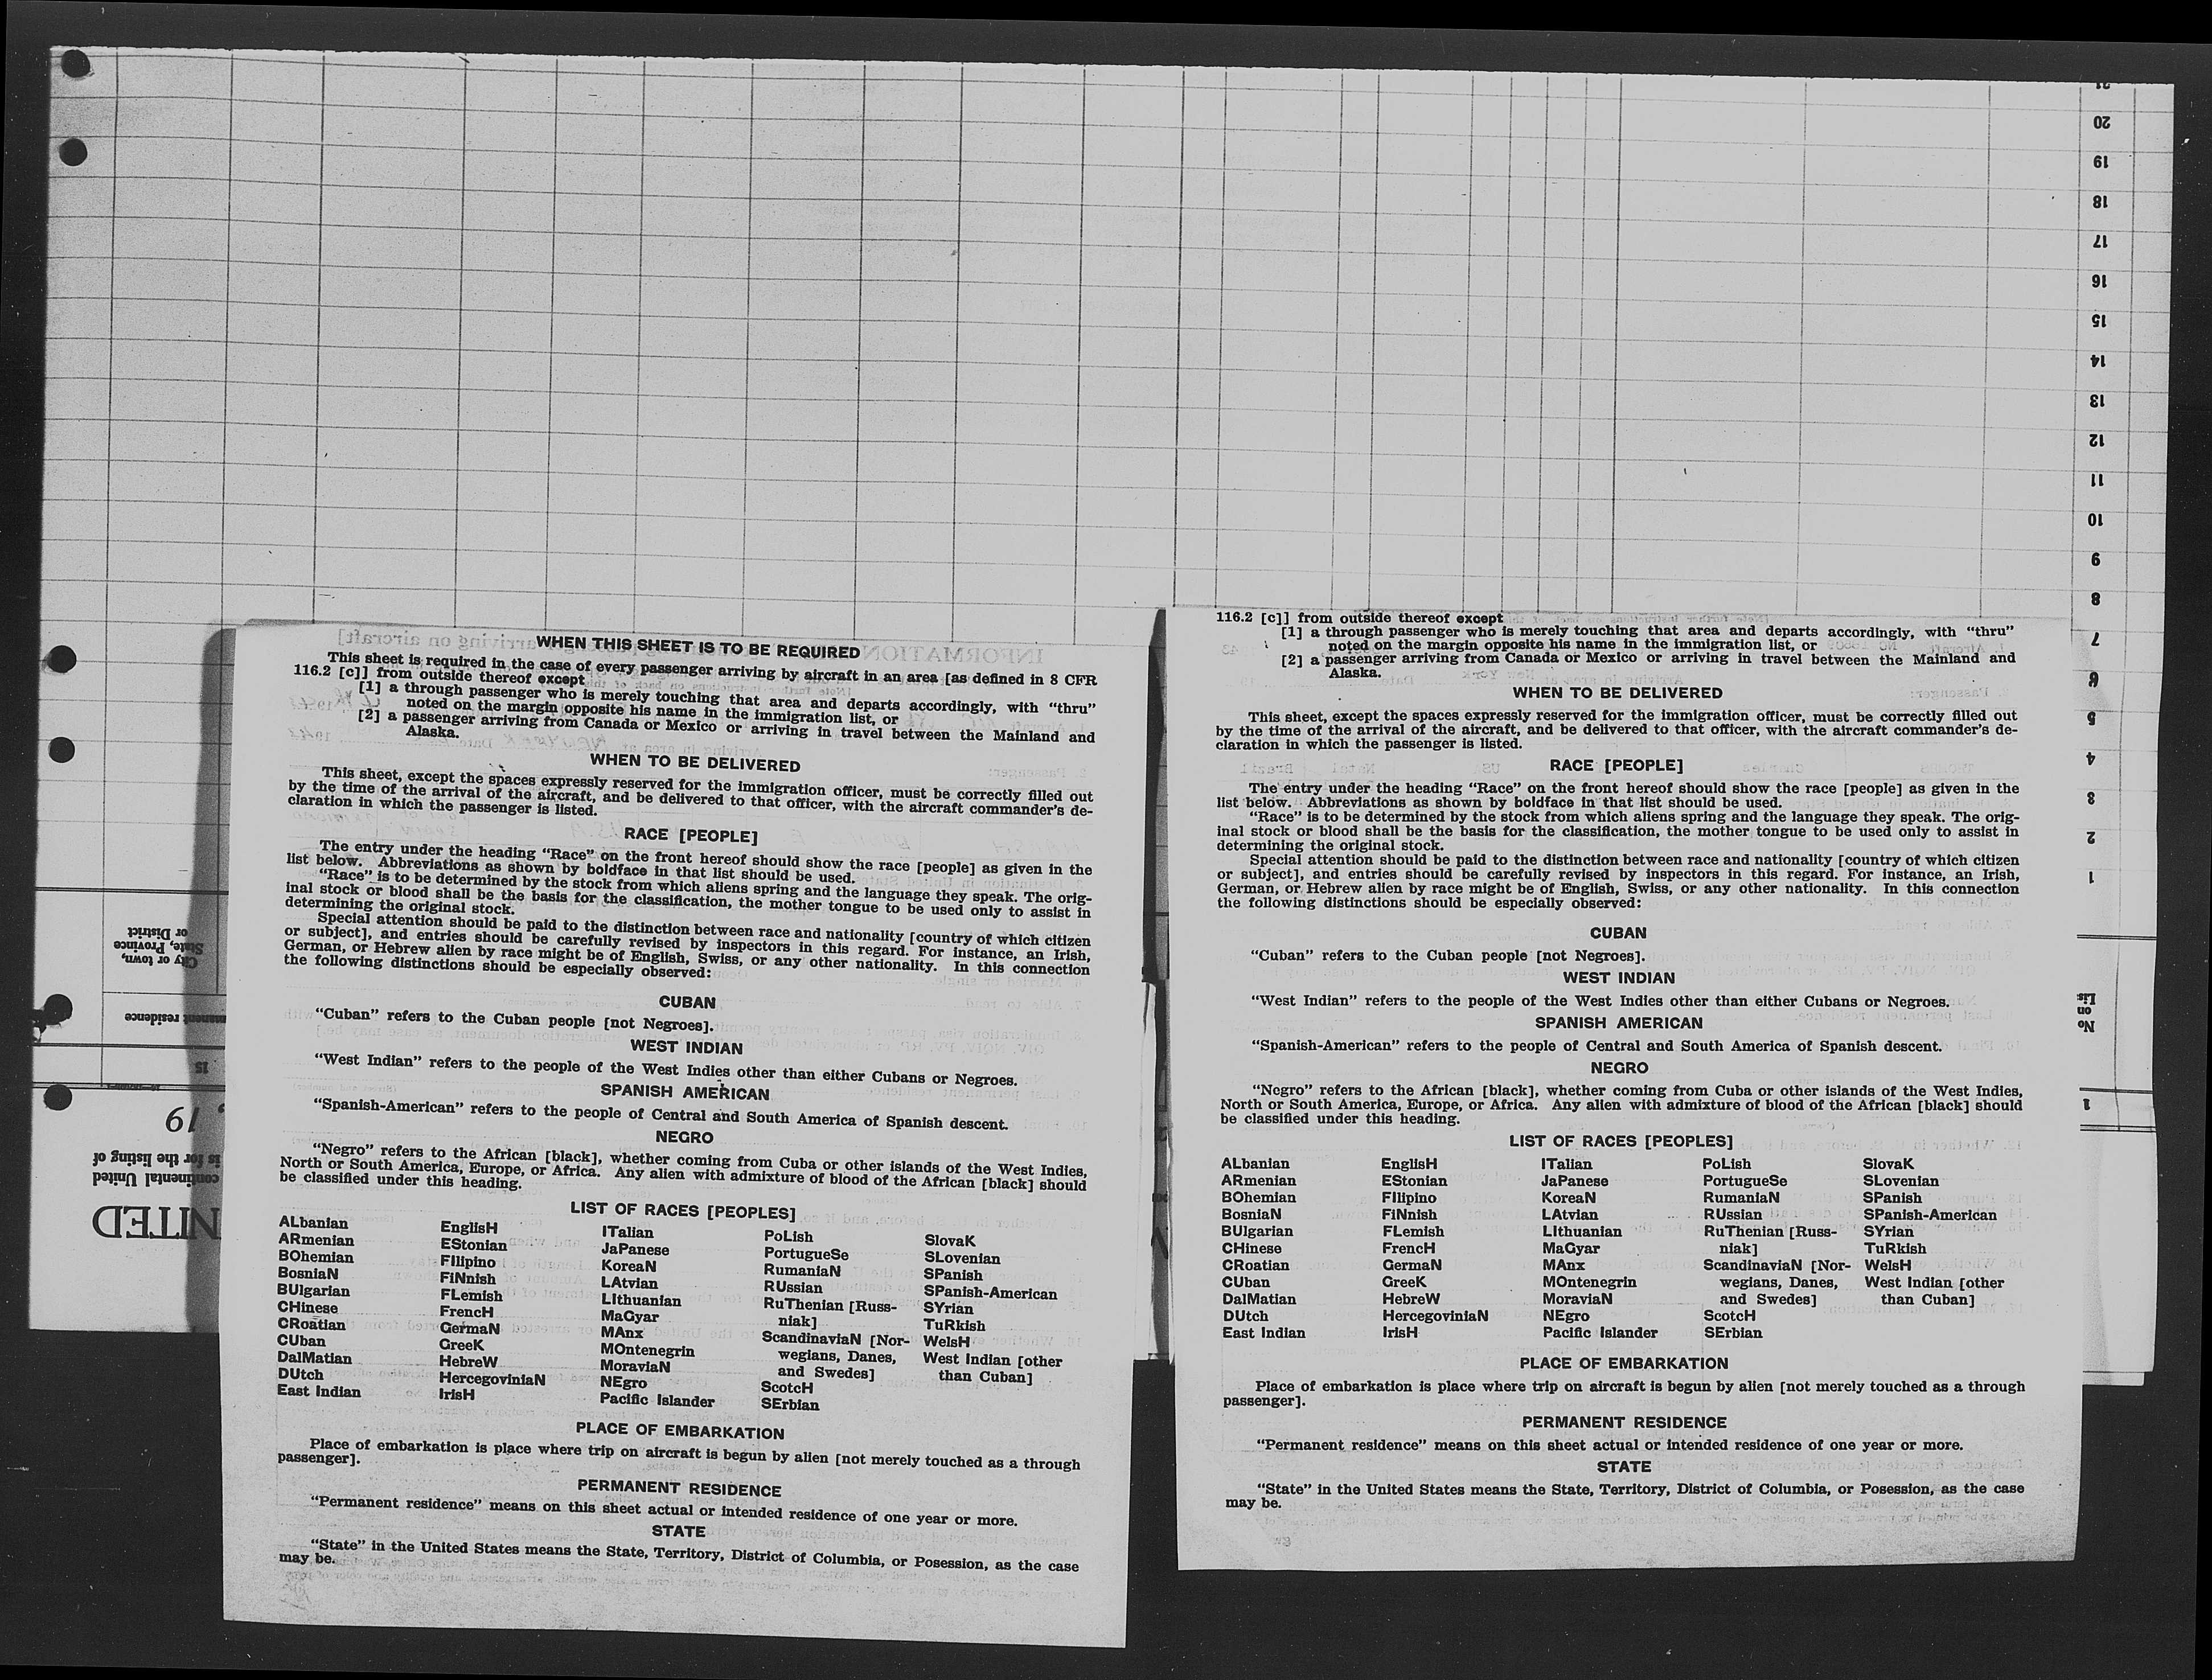 WHEN THIS SHEET IS TO BE REQUIRED
This sheet is required in the case of every passenger arriving by aircraft in an area [as defined in 8 CFR
116.2 [c]] from outside thereof except
[1] a through passenger who is merely touching that area and departs accordingly, with “thru”
noted on the margin opposite his name in the immigration list, or
[2] a passenger arriving from Canada or Mexico or arriving in travel between the Mainland and
Alaska.
WHEN TO BE DELIVERED
This sheet, except the spaces expressly reserved for the immigration officer, must be correctly filled out
by the time of the arrival of the aircraft, and be delivered to that officer, with the aircraft commander’s de-
claration in which the passenger is listed.
RACE [PEOPLE]
The entry under the heading “Race” on the front hereof should show the race [people] as given in the
list below. Abbreviations as shown by boldface in that list should be used.
“Race” is to be determined by the stock from which aliens spring and the language they speak. The orig-
inal stock or blood shall be the basis for the classification, the mother tongue to be used only to assist in
determining the original stock.
Special attention should be paid to the distinction between race and nationality [country of which citizen
or subject], and entries should be carefully revised by inspectors in this regard. For instance, an Irish,
German, or Hebrew alien by race might be of English, Swiss, or any other nationality. In this connection
the following distinctions should be especially observed:
CUBAN
“Cuban” refers to the Cuban people [not Negroes].
WEST INDIAN
“West Indian” refers to the people of the West Indies other than either Cubans or Negroes.
SPANISH AMERICAN
“Spanish-American” refers to the people of Central and South America of Spanish descent.
NEGRO
“Negro” refers to the African [black], whether coming from Cuba or other islands of the West Indies,
North or South America, Europe, or Africa. Any alien with admixture of blood of the African [black] should
be classified under this heading.
LIST OF RACES [PEOPLES]
ALbanian
ARmenian
BOhemian
BosniaN
BUlgarian
CHinese
CRoatian
CUban
DalMatian
DUtch
East Indian
EnglisH
EStonian
FIlipino
FiNnish
FLemish
FrencH
GermaN
GreeK
HebreW
HercegoviniaN
IrisH
ITalian
JaPanese
KoreaN
LAtvian
LIthuanian
MaGyar
MAnx
MOntenegrin
MoraviaN
NEgro
Pacific Islander
PoLish
PortugueSe
RumaniaN
RUssian
RuThenian [Russ-
niak]
ScandinaviaN [Nor-
wegians, Danes,
and Swedes]
ScotcH
SErbian
SlovaK
SLovenian
SPanish
SPanish-American
SYrian
TuRkish
WelsH
West Indian [other
than Cuban]
PLACE OF EMBARKATION
Place of embarkation is place where trip on aircraft is begun by alien [not merely touched as a through
passenger].
PERMANENT RESIDENCE
“Permanent residence” means on this sheet actual or intended residence of one year or more.
STATE
“State” in the United States means the State, Territory, District of Columbia, or Posession, as the case
may be.
116.2 [c]] from outside thereof except
[1] a through passenger who is merely touching that area and departs accordingly, with “thru”
noted on the margin opposite his name in the immigration list, or
[2] a passenger arriving from Canada or Mexico or arriving in travel between the Mainland and
Alaska.
WHEN TO BE DELIVERED
This sheet, except the spaces expressly reserved for the immigration officer, must be correctly filled out
by the time of the arrival of the aircraft, and be delivered to that officer, with the aircraft commander’s de-
claration in which the passenger is listed.
RACE [PEOPLE]
The entry under the heading “Race” on the front hereof should show the race [people] as given in the
list below. Abbreviations as shown by boldface in that list should be used.
“Race” is to be determined by the stock from which aliens spring and the language they speak. The orig-
inal stock or blood shall be the basis for the classification, the mother tongue to be used only to assist in
determining the original stock.
Special attention should be paid to the distinction between race and nationality [country of which citizen
or subject], and entries should be carefully revised by inspectors in this regard. For instance, an Irish,
German, or Hebrew alien by race might be of English, Swiss, or any other nationality. In this connection
the following distinctions should be especially observed:
CUBAN
“Cuban” refers to the Cuban people [not Negroes].
WEST INDIAN
“West Indian” refers to the people of the West Indies other than either Cubans or Negroes.
SPANISH AMERICAN
“Spanish-American” refers to the people of Central and South America of Spanish descent.
NEGRO
“Negro” refers to the African [black], whether coming from Cuba or other islands of the West Indies,
North or South America, Europe, or Africa. Any alien with admixture of blood of the African [black] should
be classified under this heading.
LIST OF RACES [PEOPLES]
ALbanian
ARmenian
BOhemian
BosniaN
BUlgarian
CHinese
CRoatian
CUban
DalMatian
DUtch
East Indian
EnglisH
EStonian
FIlipino
FiNnish
FLemish
FrencH
GermaN
GreeK
HebreW
HercegoviniaN
IrisH
ITalian
JaPanese
KoreaN
LAtvian
LIthuanian
MaGyar
MAnx
MOntenegrin
MoraviaN
NEgro
Pacific Islander
PoLish
PortugueSe
RumaniaN
RUssian
RuThenian [Russ-
niak]
ScandinaviaN [Nor-
wegians, Danes,
and Swedes]
ScotcH
SErbian
SlovaK
SLovenian
SPanish
SPanish-American
SYrian
TuRkish
WelsH
West Indian [other
than Cuban]
PLACE OF EMBARKATION
Place of embarkation is place where trip on aircraft is begun by alien [not merely touched as a through
passenger].
PERMANENT RESIDENCE
“Permanent residence” means on this sheet actual or intended residence of one year or more.
STATE
“State” in the United States means the State, Territory, District of Columbia, or Posession, as the case
may be.
NITED
continental United
is for the listing of
, 19
15
manent residence
City or town,
State, Province
or District
1
No
on
List
1
2
3
4
5
6
7
8
9
10
11
12
13
14
15
16
17
18
19
20
21